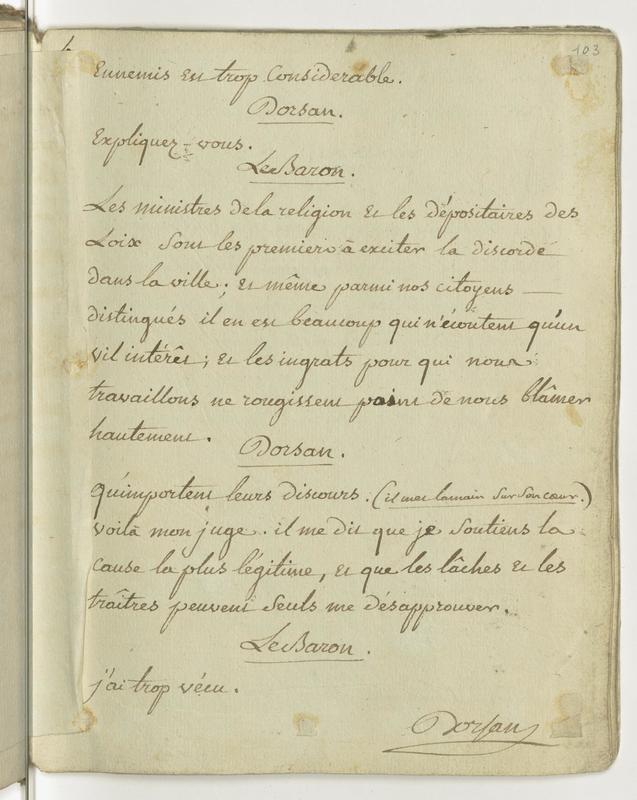 103
Ennemis est trop Considerable.
Dorsan.
Expliquez-vous.
Le Baron.
Les ministres de la religion et les dépositaires des
Loix sont les premiers à exciter la discorde
dans la ville; et même parmi nos citoyens —
distingués il en est beaucoup qui n'écoutent qu'un
vil intérêt; et les ingrats pour qui nous
travaillons ne rougissent point de nous blâmer
hautement.
Dorsan.
qu'importent leurs discours. (il met la main sur son cœur.)
voilà mon juge. il me dit que je soutiens la
cause la plus légitime, et que les lâches et les
traîtres peuvent seuls me désapprouver.
Le Baron.
j'ai trop vécu.
Dorsan